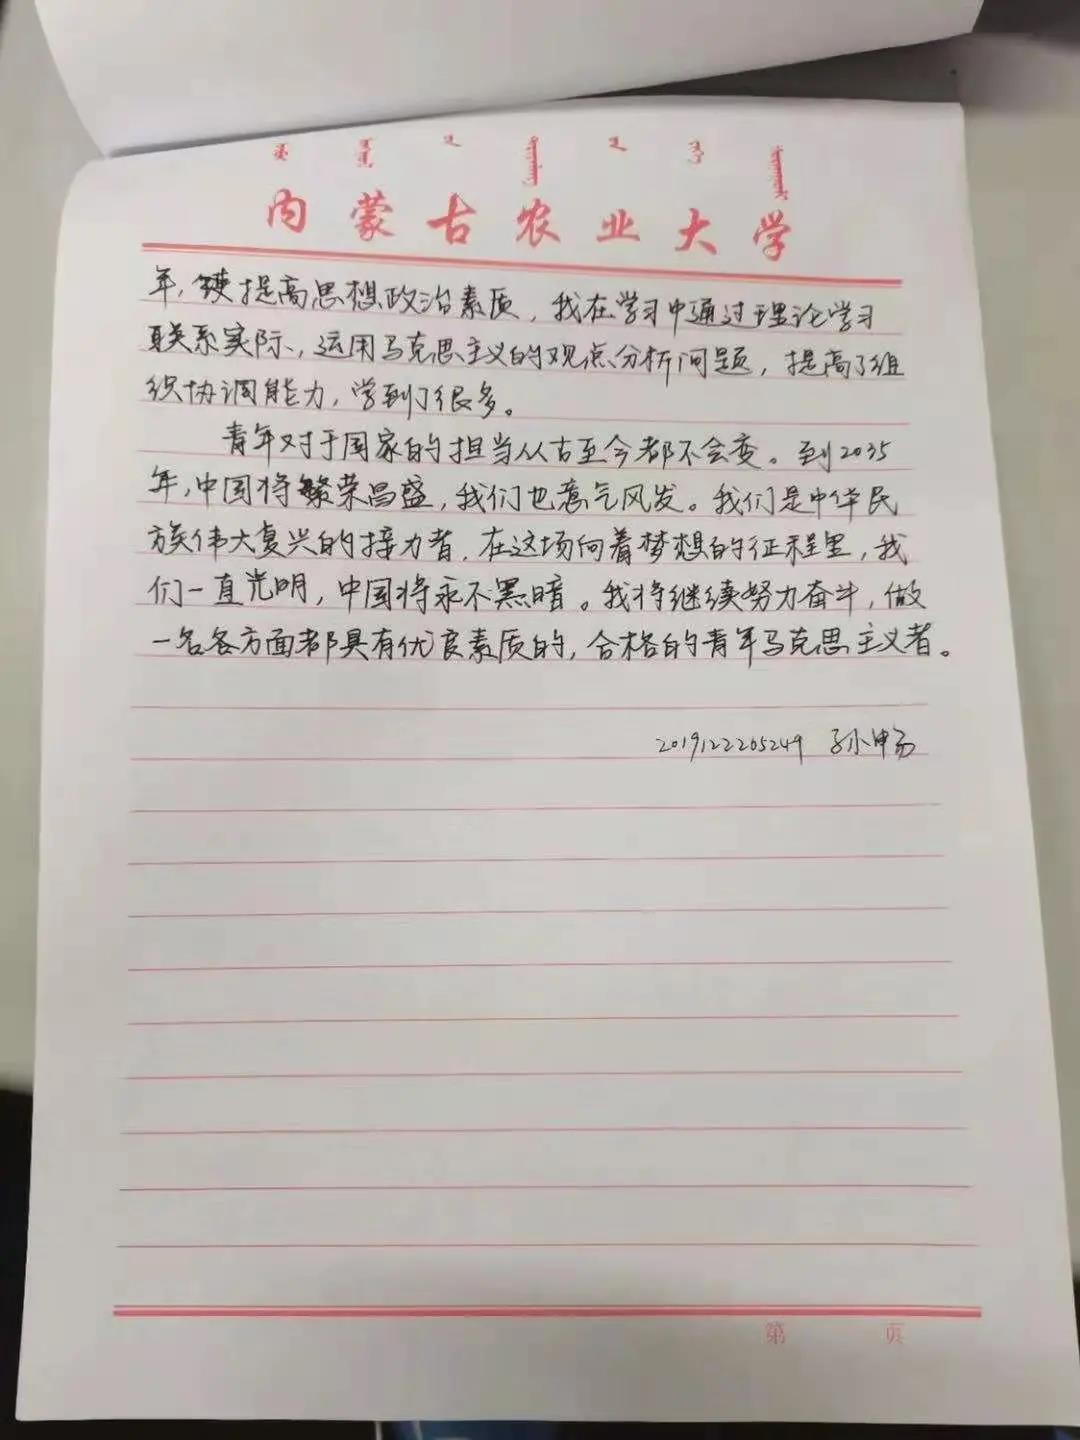 内蒙古农业大学
年,键提高思想政治素质,我在学习中通过理论学习
联系实际、运用马克思主义的观点分析问题,提高了组
织协调能力,学到了很多。
青年对于国家的担当从古至今都不会变。到2035
年,中国将繁荣昌盛,我们也意气风发。我们是中华民
族伟大复兴的接力者,在这场向着梦想的征程里,我
们一直光明,中国将永不黑暗。我将继续努力奋斗,做
一名各方面都具有优良素质的,合格的青年马克思主义者。
201912205249 孙坤
第 页